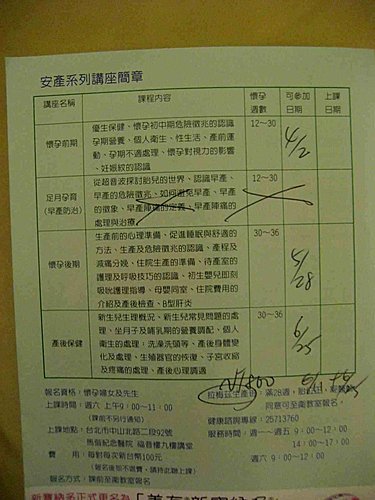 安產系列講座簡章
講座名稱 課程內容 懷孕週數 可參加日期 上課日期
懷孕前期 12~30 4/2
優生保健、懷孕初中期危險徵兆的認識
孕期營養、個人衛生、性生活、產前運
動、孕期不適處理、懷孕對視力的影響
、妊娠紋的認識
足月孕育(早產防治) 12~30
從超音波探討胎兒的世界、認識早產、
早產的危險徵兆、如何避免早產、早產
的徵象、早產陣痛的定義、早產陣痛的
處理與治療
懷孕後期 30~36
生產前的心理準備、促進睡眠與舒適的
方法、生產及危險徵兆的認識、產程及
減痛分娩、住院生產的準備、待產室的
護理及呼吸技巧的認識、初生嬰兒即刻
吸吮護理指導、母嬰同室、住院費用的
介紹及產後檢查、B型肝炎
產後保健 30~36 6/25
新生兒生理概況、新生兒常見問題的處
理、坐月子及哺乳期的營養調配、個人
衛生的處理、洗澡洗頭等、產後身體變
化及處理、生殖器官的恢復、子宮收縮
及疼痛的處理、產後心理調適
NT800
報名資格：懷孕婦女及先生
上課時間：週六 上午9：00～11：00
(課前不另行通知)
上課地點：台北市中山北路二段92號
馬偕紀念醫院 福音樓九樓講堂
費 用：每對每次新台幣100元
(報名後如不退費，請持此聯上課)
報名方式：課前至衛教室報名
拉梅茲生產
滿28週，
同意可至衛教室報名。
健康諮詢專線：25713760
服務時間：週一～週五 9：00－12：00
14：00－17：00
週六 9：00－12：00